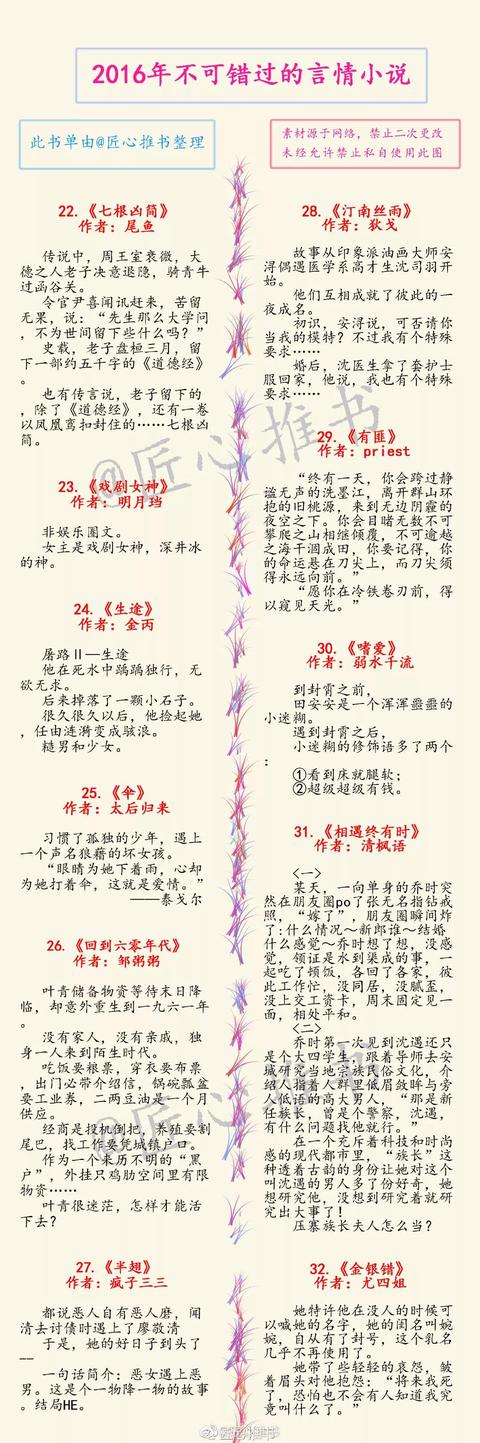 2016年不可错过的言情小说
此书单由@匠心推书整理
素材源于网络，禁止二次更改
未经允许禁止私自使用此图
22.《七根凶简》
作者：尾鱼
传说中，周王室衰微，大
德之人老子决意退隐，骑青牛
过函谷关。
令官尹喜闻讯赶来，苦留
无果，说：“先生那么大学问
，不为世间留下些什么吗？”
史载，老子盘桓三月，留
下一部约五千字的《道德经》
。
也有传言说，老子留下的
，除了《道德经》，还有一卷
以凤凰鸾扣封住的……七根凶
简。
23.《戏剧女神》
作者：明月珰
非娱乐圈文。
女主是戏剧女神，深井冰
的神。
24.《生途》
作者：金丙
屠路Ⅱ—生途
他在死水中踽踽独行，无
欲无求。
后来掉落了一颗小石子。
很久很久以后，他捡起她
，任由涟漪变成骇浪。
糙男和少女。
25.《伞》
作者：太后归来
习惯了孤独的少年，遇上
一个声名狼藉的坏女孩。
“眼睛为她下着雨，心却
为她打着伞，这就是爱情。”
——泰戈尔
26.《回到六零年代》
作者：邹粥粥
叶青储备物资等待末日降
临，却意外重生到一九六一年
。
没有家人，没有亲戚，独
身一人来到陌生时代。
吃饭要粮票，穿衣要布票
，出门必带介绍信，锅碗瓢盆
要工业券，二两豆油是一个月
供应。
经商是投机倒把，养殖要割
尾巴，找工作要凭城镇户口。
作为一个来历不明的“黑
户”，外挂只鸡肋空间里有限
物资……
叶青很迷茫，怎样才能活
下去？
27.《半翅》
作者：疯子三三
都说恶人自有恶人磨，闻
清去讨债时遇上了廖敬清
于是，她的好日子到头了
——
一句话简介：恶女遇上恶
男。这是个一物降一物的故事
。结局HE。
28.《汀南丝雨》
作者：狄戈
故事从印象派油画大师安
浔偶遇医学系高才生沈司羽开
始。
他们互相成就了彼此的一
夜成名。
初识，安浔说，可否请你
当我的模特？不过我有个特殊
要求……
婚后，沈医生拿了套护士
服回家，他说，我也有个特殊
要求……
29.《有匪》
作者：priest
“终有一天，你会跨过静
谧无声的洗墨江，离开群山环
抱的旧桃源，来到无边阴霾的
夜空之下。你会目睹无数不可
攀爬之山相继倾覆，不可逾越
之海干涸成田，你要记得，你
的命运悬在刀尖上，而刀尖须
得永远向前。”
“愿你在冷铁卷刃前，得
以窥见天光。”
30.《嗜爱》
作者：弱水千流
遇到封霄之前，
田安安是一个浑浑噩噩的
小迷糊。
遇到封霄之后，
小迷糊的修饰语多了两个
：
①看到床就腿软；
②超级超级有钱。
31.《相遇终有时》
作者：清枫语
<一>
某天，一向单身的乔时突
然在朋友圈po了张无名指钻戒
照，“嫁了”，朋友圈瞬间炸
了：什么情况～新郎谁～结婚
什么感觉～乔时想了想，没感
觉，领证是水到渠成的事，一
起吃了顿饭，各回了各家，彼
此工作忙，没同居，没腻歪，
没上交工资卡，周末固定见一
面，相处平和。
<二>
乔时第一次见到沈遇还只
是个大四学生，跟着导师去安
城研究当地宗族民俗文化，介
绍人指着人群里低眉敛眸与旁
人低语的高大男人，“那是新
任族长，曾是个警察，沈遇，
有什么问题找他就行。”
在一个充斥着科技和时尚
感的现代都市里，“族长”这
种透着古韵的身份让她对这个
叫沈遇的男人多了份好奇，她
想研究他，没想到研究着就研
究出大事了！
压寨族长夫人怎么当？
32.《金银错》
作者：尤四姐
她特许他在没人的时候可
以喊她的名字，她的闺名叫婉
婉，自从有了封号，这个乳名
几乎不再使用了。
她带了些轻轻的哀怨，皱
着眉头对他抱怨：“将来我死
了，恐怕也不会有人知道我究
竟叫什么了。”
@匠心推书
@匠心推书
@匠心推书